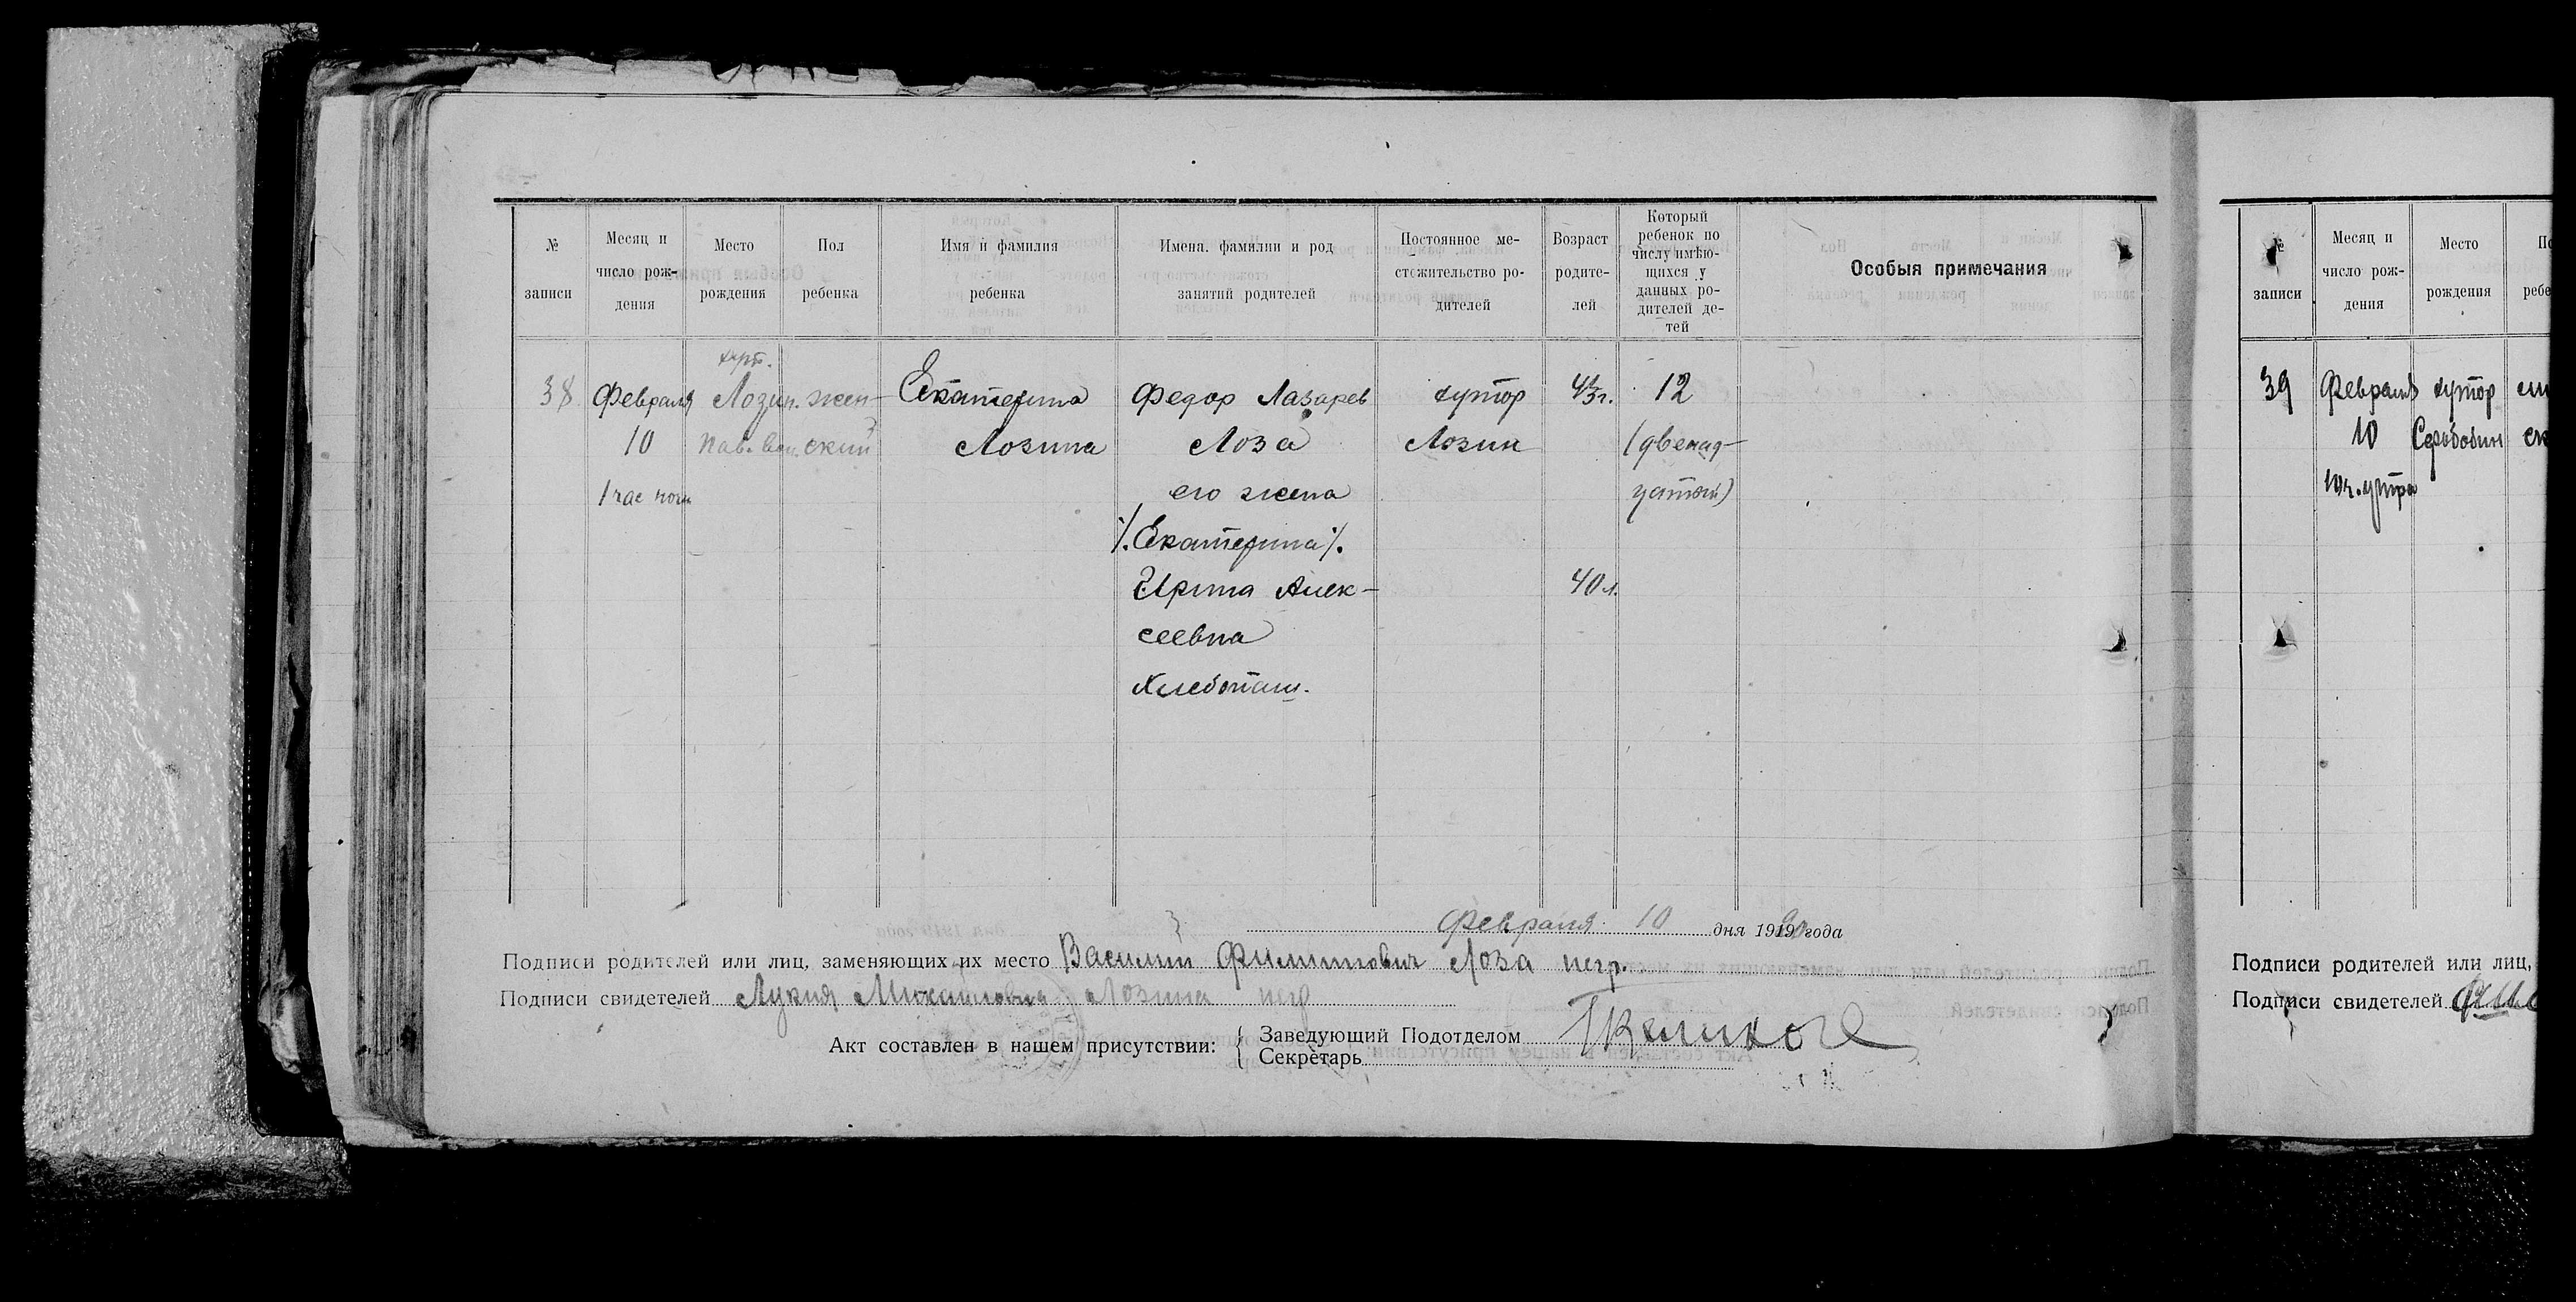 № записи
Месяц и число рождения
Место рождения
Пол ребенка
Имя и фамилия ребенка
Имена, фамилии и род занятий родителей
Постоянное местожительство родителей
Возраст родителей
Который ребенок по числу имѣющихся у данных родителей детей
Особыя примечания
38
Февраля
10
1 час ночи
хут.
Лозин.
Пав. вол.
женский
Екатерина
Лозина
Федор Лазарев
Лоза
его жена
./. Екатерина ./.
Ирина Алексеевна
Хлебопаш.
хутор
Лозин
43 г.
40 л.
12
(двенадцатый)
Февраля 10 дня 1919 года
Подписи родителей или лиц, заменяющих их место Василий Филиппович Лоза негр.
Подписи свидетелей Лукия Михайловна Лозина негр
Акт составлен в нашем присутствии: { Заведующий Подотделом
Секретарь
№ записи
Месяц и число рождения
Место рождения
39
Февраля
10
10 ч. утра
хутор
Подписи родителей или лиц,
Подписи свидетелей